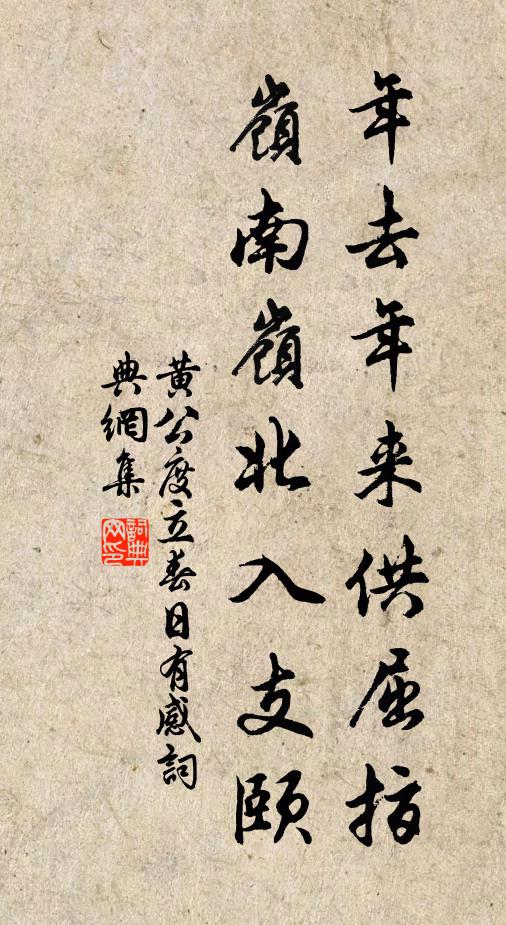 年去年来供屈指
嶺南嶺北入支頤
黃公度立春日有感詞
典網集
詞典網印